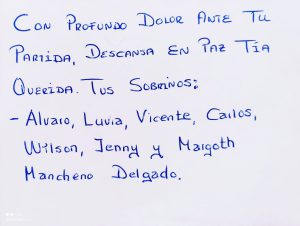 Con Profundo Dolor Ante Tu
Partida, Descansa En Paz Tía
Querida. Tus Sobrinos:
- Alvaro, Luvia, Vicente, Carlos,
Wilson, Jenny y Margoth
Mancheno Delgado.